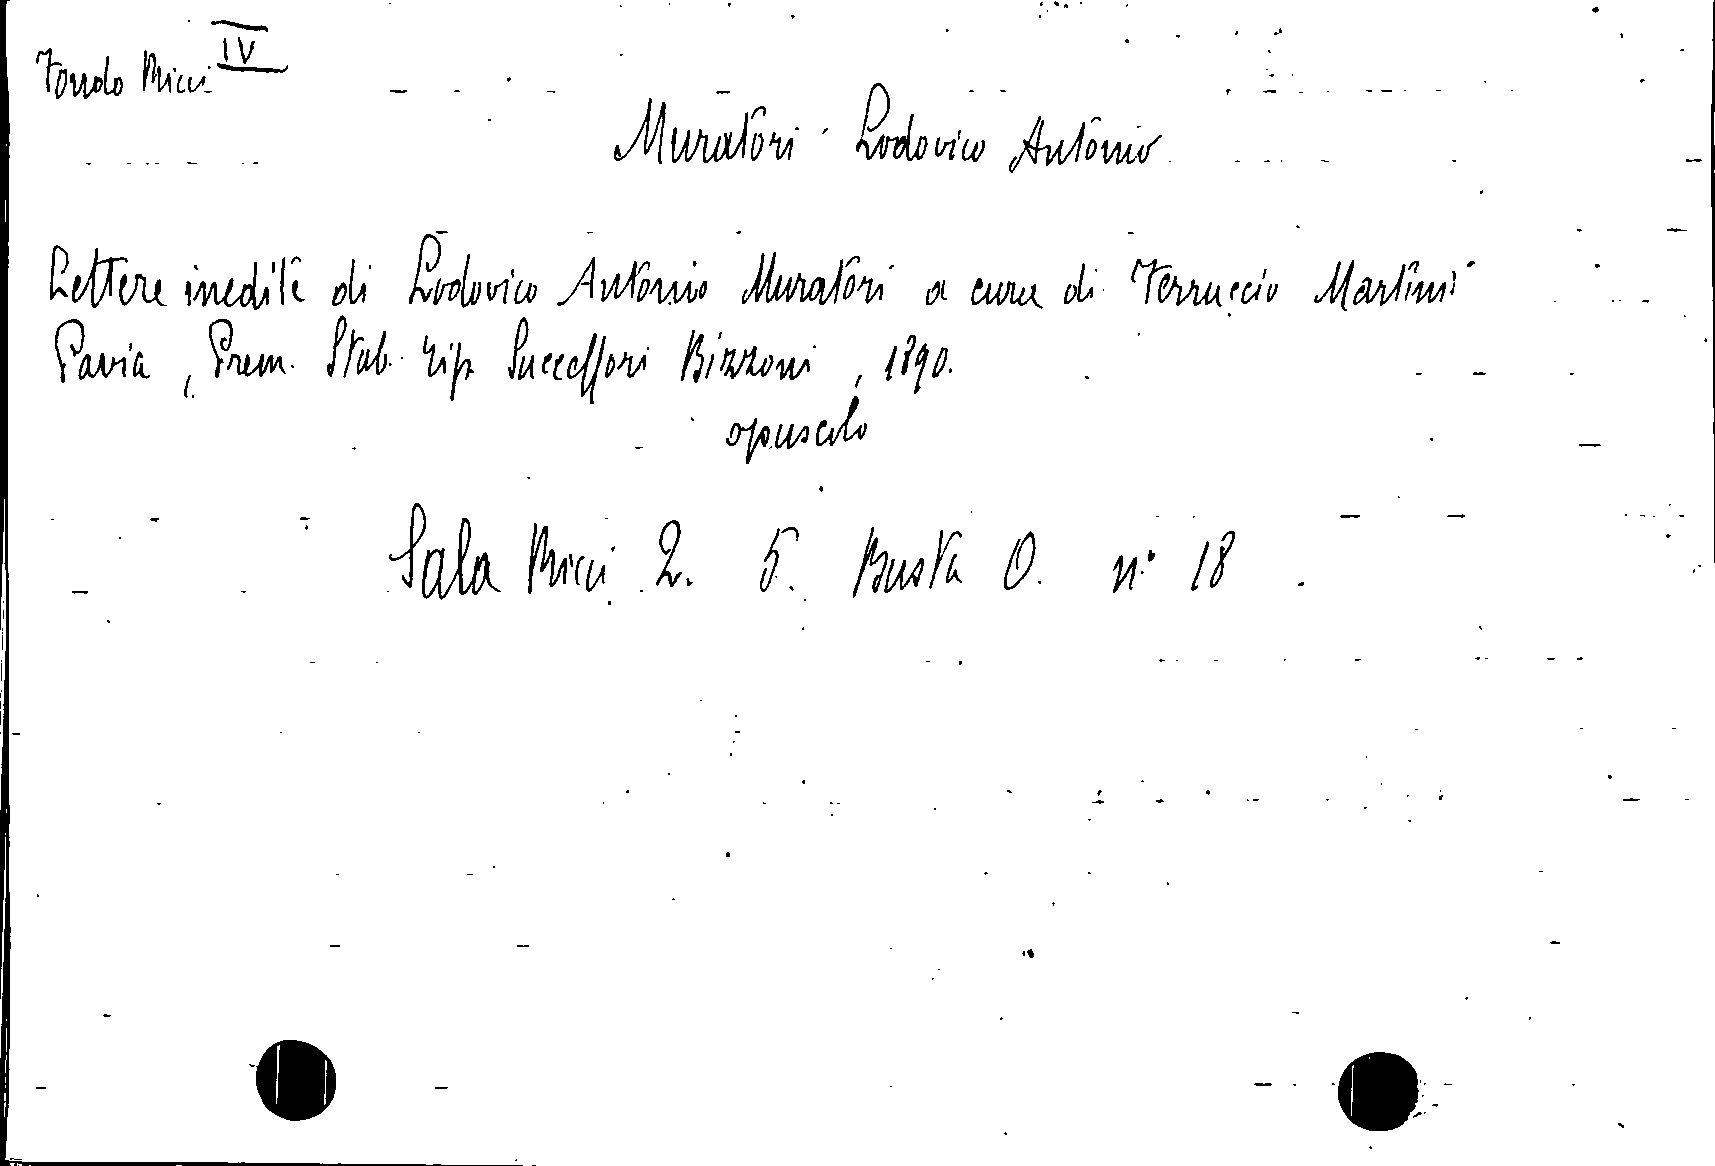 Fondo Ricci IV
Muratori Lodovico Antonio
Lettere inedite di Lodovico Antonio Muratori a cura di Ferruccio Martini
Pavia, Prem. Stab. Tip. Successori Bizzoni, 1890.
opuscolo
Sala Ricci 2. 5. Busta O. n° 18